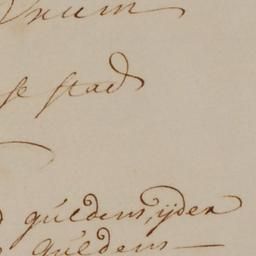 se stad
guldens, ijder
guldens —